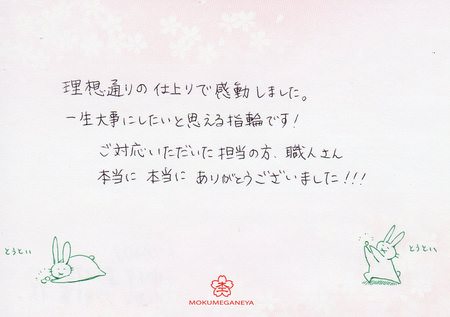 理想通りの仕上りで感動しました。
一生大事にしたいと思える指輪です!
ご対応いただいた担当の方、職人さん
本当に 本当に ありがとうございました!!!
とうとい
とうとい
MOKUMEGANEYA